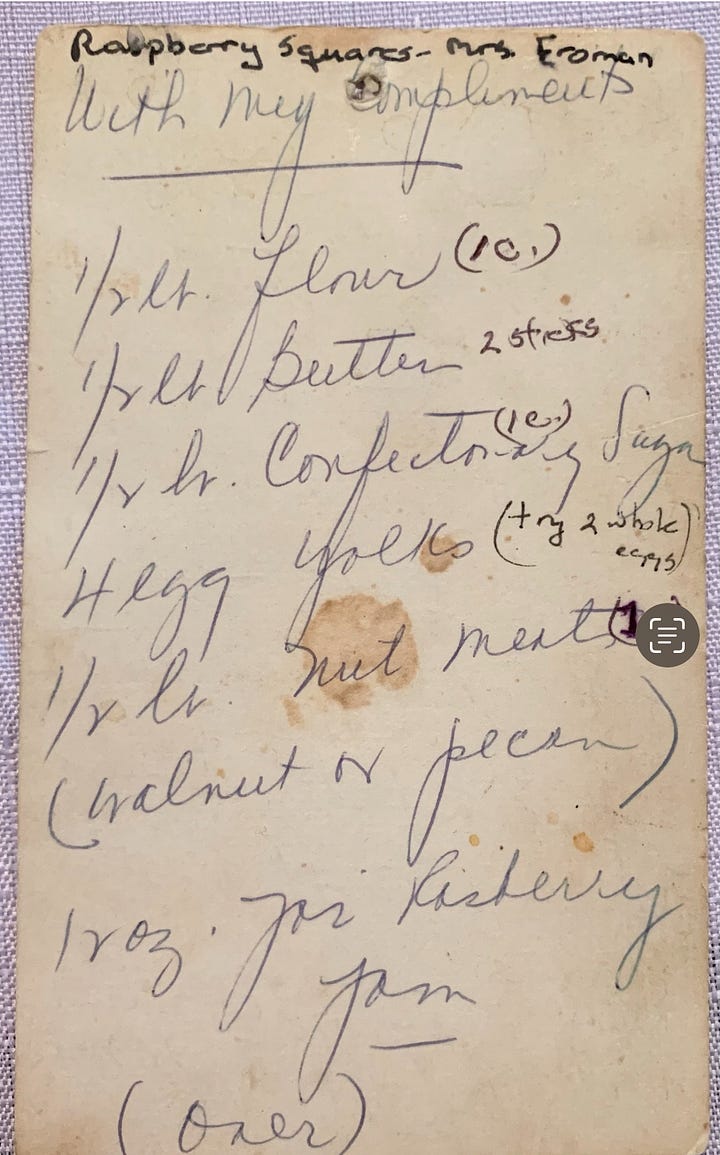 Raspberry Squares - Mrs. Eroman
With my Compliments
1/2 lb. flour (1 c.)
1/2 lb Butter 2 sticks
1/2 lb. Confectionary Suga (1 c.)
4 egg yolks (try 2 whole
eggs)
1/2 lb. nut meats (1
(walnut or pecan)
12 oz. jar Rasberry
jam
(over)